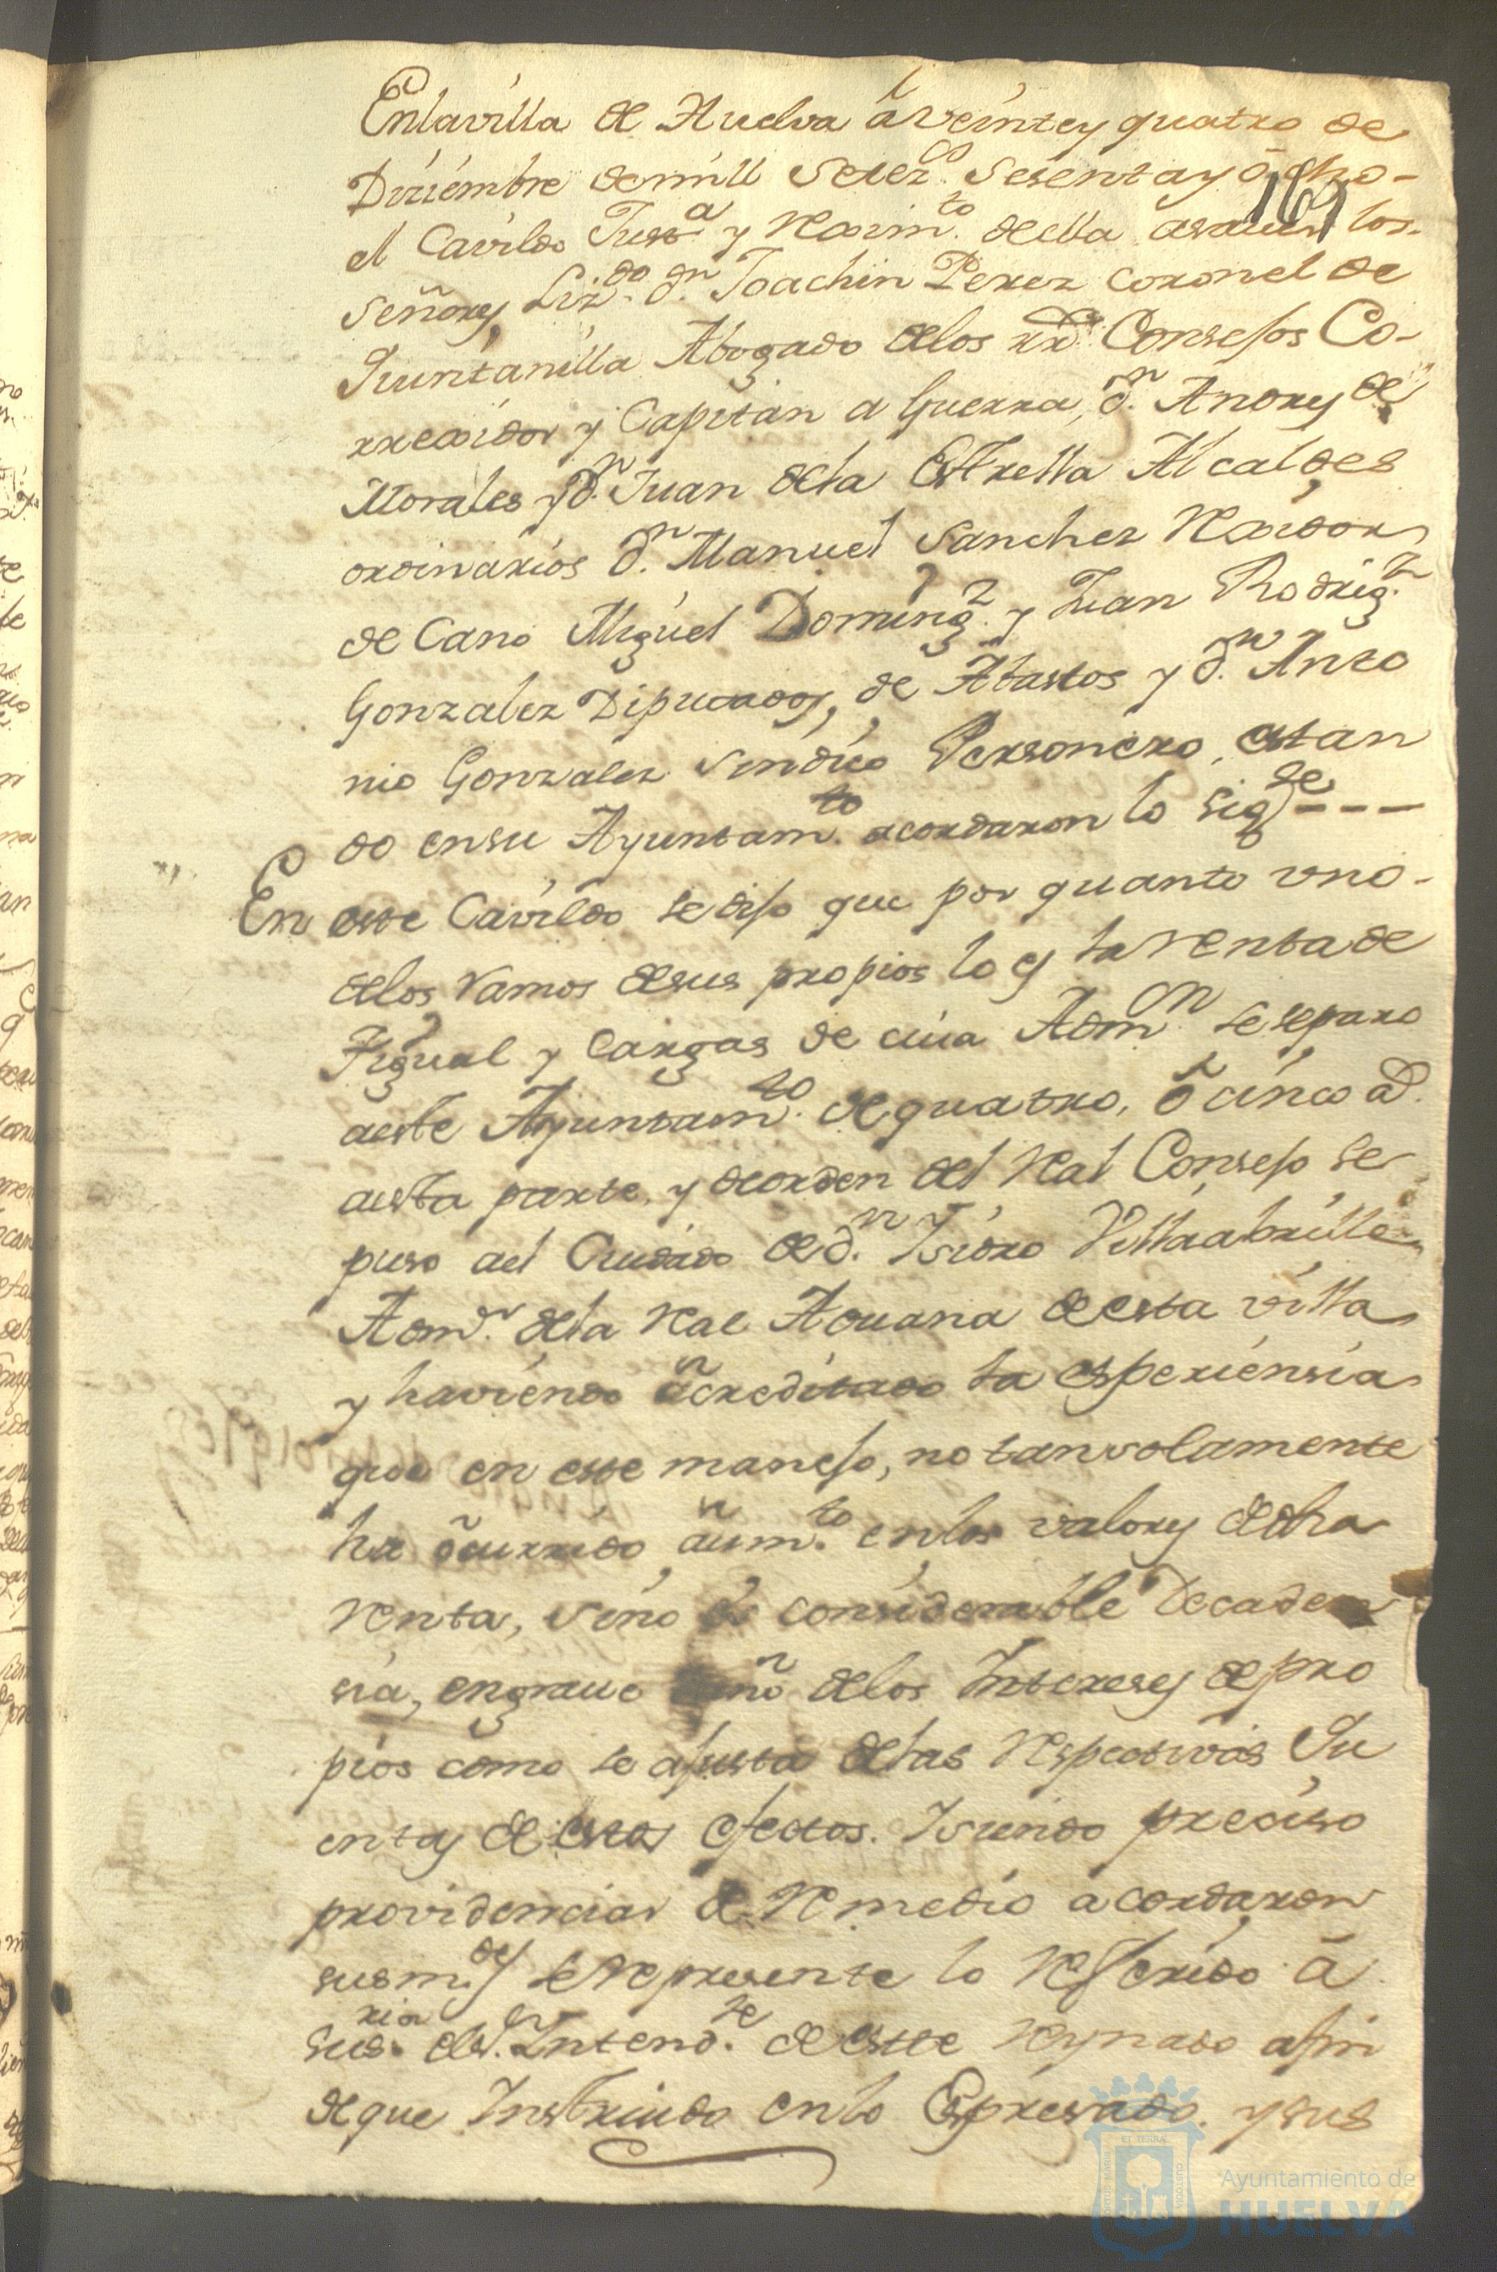 Enlavilla de Huelva á veintey quatro de
Diziembre demill Setez.os Sesentay ôcho-
169
el Cavildo Just.a y Rexim.to della asaver los.
Señores Liz.do d.n Joachin Perez Coronel de
Quintanilla Abogado delos rr.s Consejos Co-
rrexidor y Capitan a Guerra, d.n Andres de
Morales y d.n Juan dela Estrella Alcaldes
ordinarios d.n Manuel Sanchez Rexidor
de Cano Miguel Doming.z y Juan Rodrig.z
Gonzalez Diputados, de Abastos y d.n Anto
nio Gonzalez Sindico Personero, estan
do ensu Ayuntam.to acordaron lo sig.te - - -
En este Cavildo se dijo que por quanto uno-
delos Ramos desus propios lo es la Renta de
Jigual y Cargas de cuia Adm.on se separo
aeste Ayuntam.to dequatro, ô cinco a.s
aesta parte, y deorden del Real Consejo se
puso ael Cuidado de d.n Ysidro Villaabrille
Adm.or dela Real Aduana deesta villa
y haviendo ãcreditado la esperiensia
que en este manejo, no tansolamente
ha õcurrido aum.to enlos valores dedha
Renta, sino considerable decaden
sia, engrave daño delos Intereses depro
pios como se ajusta delas Respectivas Qu
entas de estos efectos. Ysiendo preciso
providenciar de Remedio acordaron
susm.des se Represente lo Referido â
sus.ria el s.r Intend.te de este Reynado afin
deque Instruido enlo Espresado. y sus
Ayuntamiento de
HUELVA